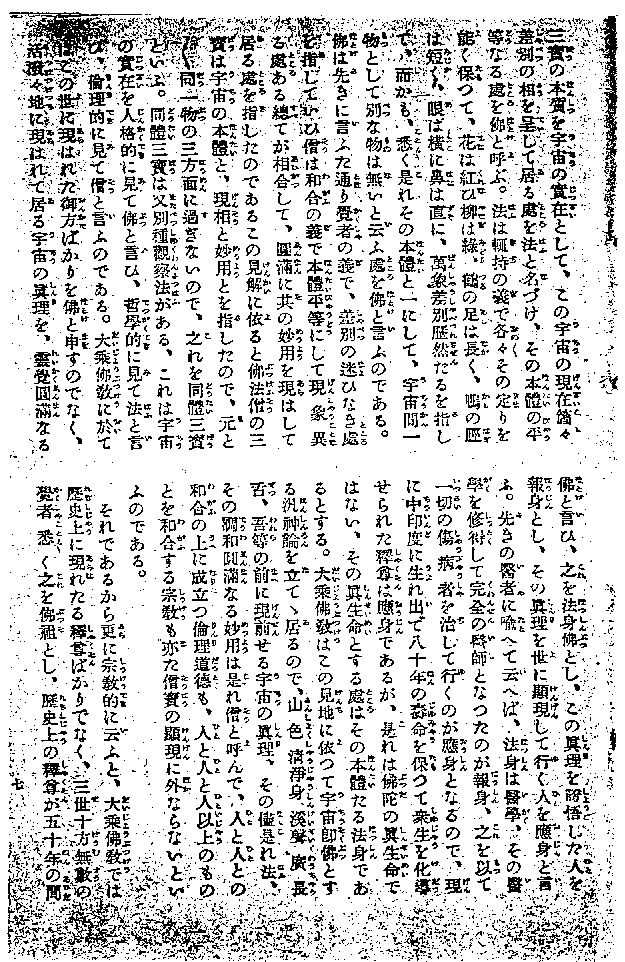 三寶の本質を宇宙の實在として、この宇宙の現在箇々
差別の相を呈して居る處を法と名づけ、その本體の平
等なる處を佛と呼ぶ。法は軌持の義で各々その定りを
能く保つて、花は紅ひ柳は綠、鶴の足は長く、鴨の脛
は短く、眼は橫に鼻は直に、萬象差別歷然たるを指し
て、而かも、悉く是れその本體と一にして、宇宙間一
物として別な物は無いと云ふ處を佛と言ふのである。
佛は先きに言ふた通り覺者の義で、差別の迷ひなき處
を指して云ひ僧は和合の義で本體平等にして現象異
る處ある總てが相合して、圓滿に共の妙用を現はして
居る處を指したのであるこの見解に依ると佛法僧の三
寶は宇宙の本體と、現相と妙用とを指したので、元と
同一物の三方面に過ぎないので、之れを同體三寶
といふ。同體三寶は又別種觀察法がある、これは宇宙
の實在を人格的に見て佛と言ひ、哲學的に見て法と言
ひ、倫理的に見て僧と言ふのである。大乘佛敎に於て
はこの世に現はれた御方ばかりを佛と申すのでなく、
活潑々地に現はれて居る宇宙の眞理を、靈覺圓滿なる
佛と言ひ、之を法身佛とし、この眞理を證悟した人を
報身とし、その眞理を世に顯現して行く人を應身と言
ふ。先きの醫者に喩へて云へば、法身は醫學、その醫
學を修得して完全の醫師となつたのが報身、之を以て
一切の傷病者を治して行くのが應身となるので、現
に中印度に生れ出で八十年の壽命を保つて衆生を化導
せられた釋尊は應身であるが、是れは佛陀の眞生命で
はない、その眞生命とする處はその本體たる法身であ
るとする。大乘佛敎はこの見地に依つて宇宙卽佛とす
る汎神論を立てゝ居るので、山色淸淨身、溪聲廣長
舌、吾等の前に現前せる宇宙の眞理、その儘是れ法、
その調和圓滿なる妙用は是れ僧と呼んで、人と人との
和合の上に成立つ倫理道德も、人と人以上のもの
とを和合する宗敎も亦た僧寶の顯現に外ならないとい
ふのである。
それであるから更に宗敎的に云ふと、大乘佛敎では
歷史上に現れたる釋尊ばかりでなく、三世十方無數の
覺者悉く之を佛祖とし、歷史上の釋尊が五十年の間
七